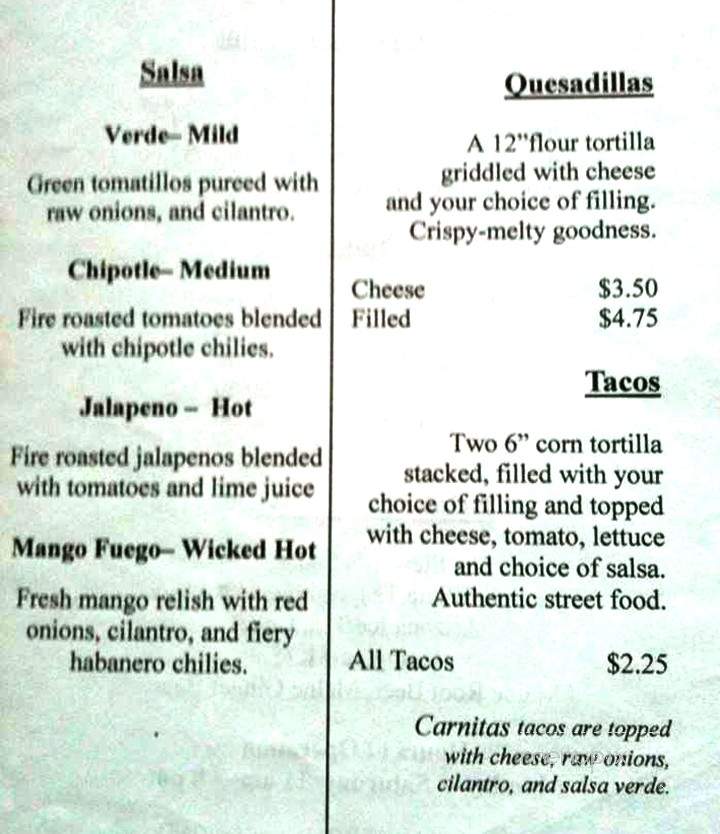 Salsa
Verde– Mild
Green tomatillos pureed with
raw onions, and cilantro.
Chipotle– Medium
Fire roasted tomatoes blended
with chipotle chilies.
Jalapeno – Hot
Fire roasted jalapenos blended
with tomatoes and lime juice
Mango Fuego– Wicked Hot
Fresh mango relish with red
onions, cilantro, and fiery
habanero chilies.
Quesadillas
A 12”flour tortilla
griddled with cheese
and your choice of filling.
Crispy-melty goodness.
Cheese $3.50
Filled $4.75
Tacos
Two 6” corn tortilla
stacked, filled with your
choice of filling and topped
with cheese, tomato, lettuce
and choice of salsa.
Authentic street food.
All Tacos $2.25
Carnitas tacos are topped
with cheese, raw onions,
cilantro, and salsa verde.